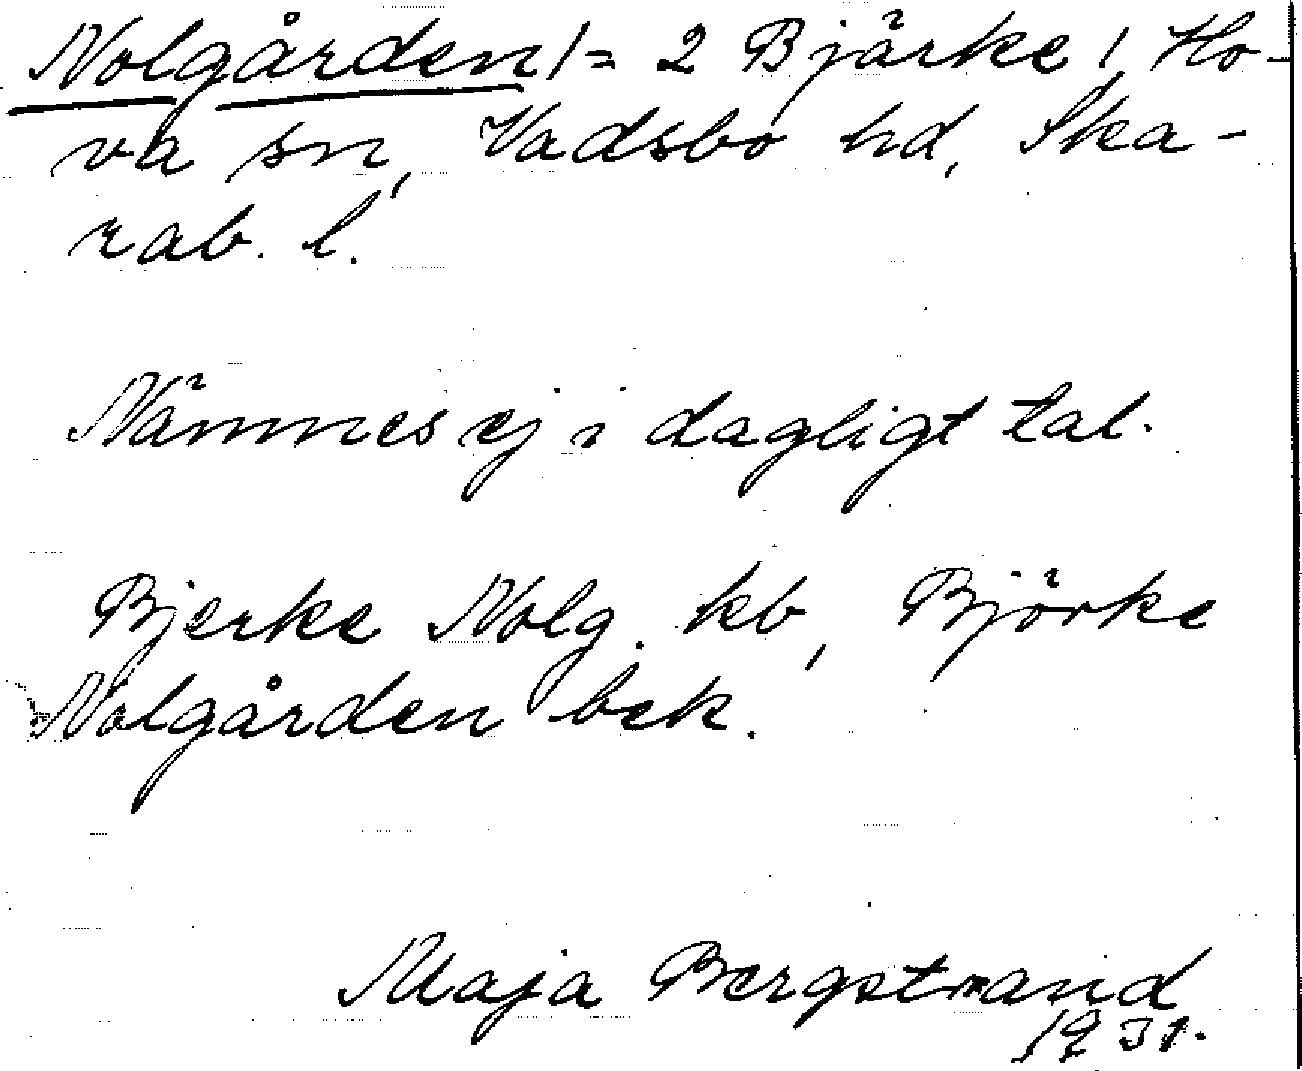 Nolgården /= 2 Bjärke / Ho-
va sn, Vadsbo hd, Ska-
rab. l.
Nämnes ej i dagligt tal.
Bjerke Nolg. kb, Björke
Nolgården bek.
Maja Bergstrand
1931.